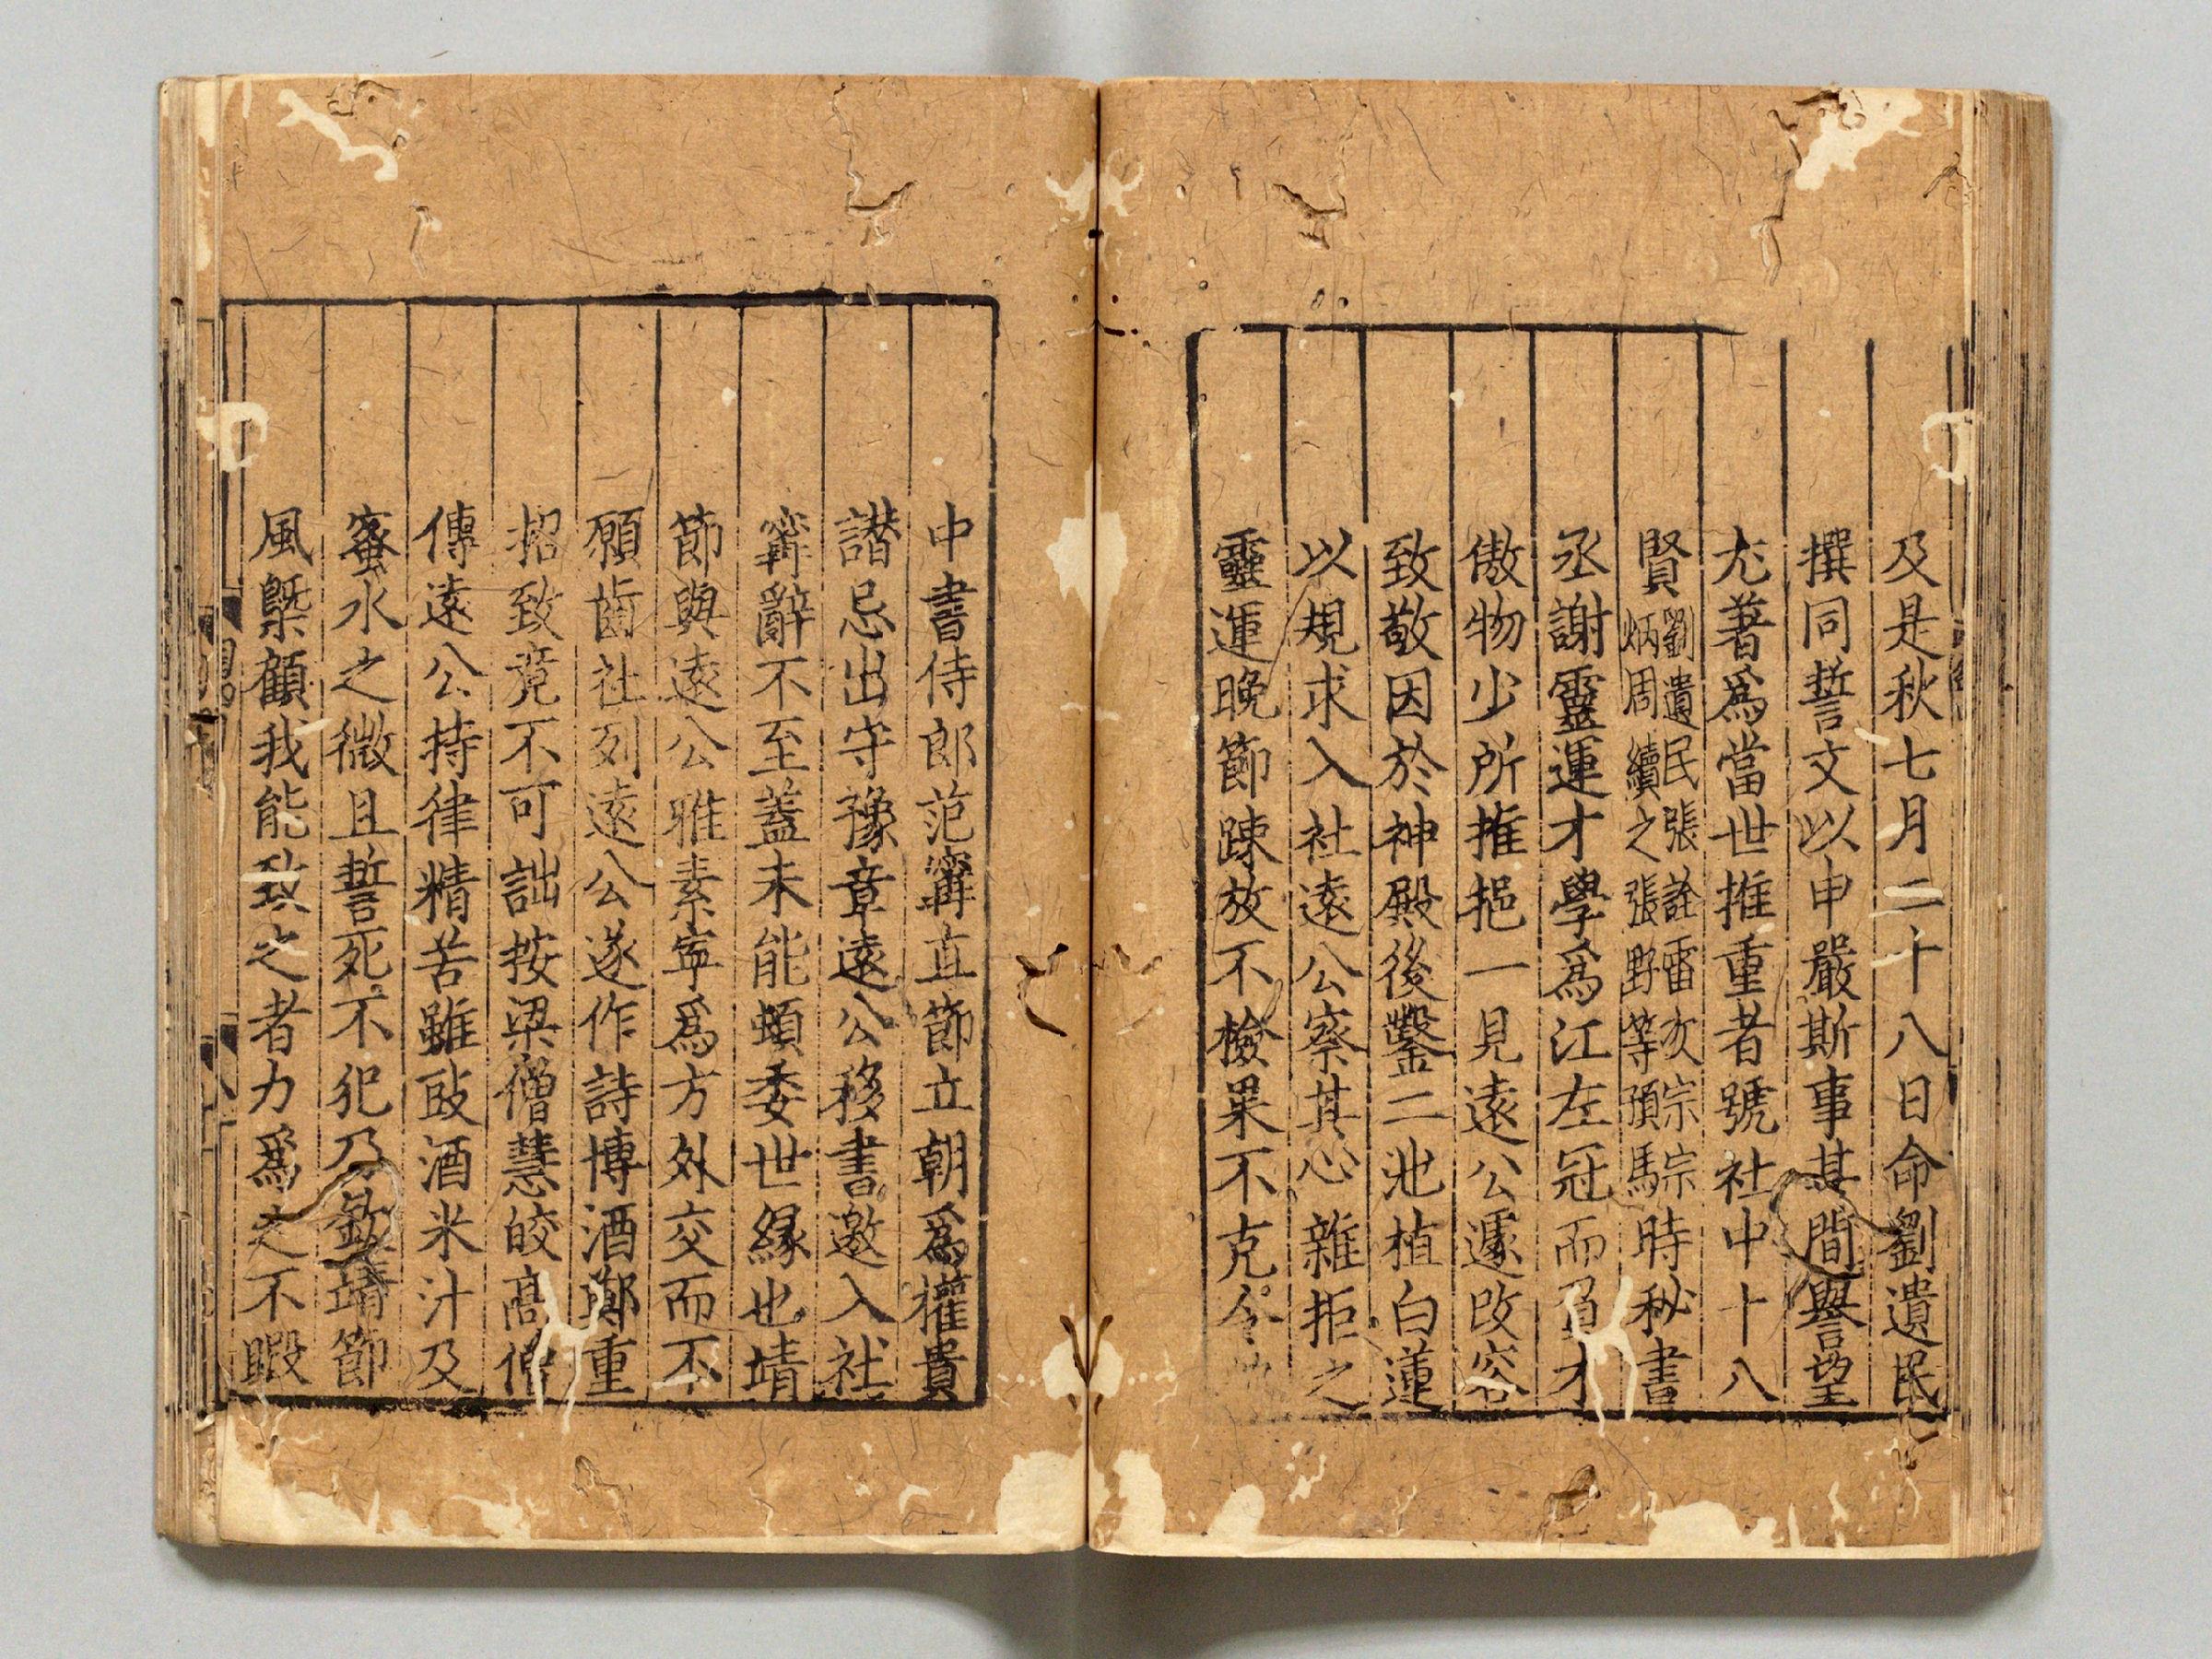 及是秋七月二十八日命劉遺民
撰同誓文以申嚴斯事其間譽望
尤著爲當世推重者號社中十八
賢劉遺民張詮雷次宗宗炳周續之張野等預焉時秘書
丞謝靈運才學爲江左冠而負才
傲物少所推挹一見遠公遽改容
致敬因於神殿後鑿二池植白蓮
以規求入社遠公察其心雜拒之
靈運晚節疎放不檢果不克令
中書侍郎范寗直節立朝爲權貴
譛忌出守豫章遠公移書邀入社
寗辭不至蓋未能頓委世緣也靖
節與遠公雅素寧爲方外交而不
願齒社列遠公遂作詩博酒鄭重
招致竟不可詘按梁僧慧皎高僧
傳遠公持律精苦雖豉酒米汁及
蜜水之微且誓死不犯乃欽靖節
風槩顧我能致之者力爲之不暇